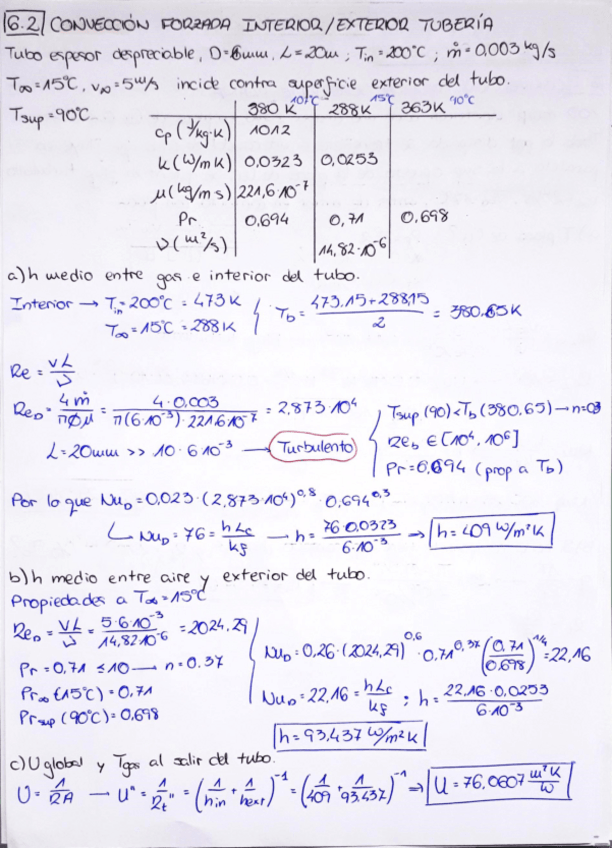 6.2 CONVECCIÓN FORZADA INTERIOR/EXTERIOR TUBERÍA
Tubo espesor despreciable, D=6mm, L=20m; Tin=200°C; ṁ=0,003 kg/s
T∞=15°C, v∞=5m/s incide contra superficie exterior del tubo.
Tsup=90°C
380 K 107°C 288K 15°C 363K 90°C
cp (J/kg·K) 1012
K (W/mK) 0,0323 0,0253
μ (kg/ms) 221,6·10⁻⁷
Pr 0,694 0,71 0,698
ν (m²/s) 14,82·10⁻⁶
a) h medio entre gas e interior del tubo.
Interior → Tin=200°C = 473K
T∞=15°C = 288K
Tb = (473,15+288,15)/2 = 380,65K
Re = vL/ν
ReD = 4ṁ/πØμ = 4·0,003/π(6·10⁻³)·221,6·10⁻⁷ = 2,873·10⁴
L=20mm >> 10·6·10⁻³ → Turbulento
Tsup(90)<Tb(380,65) → n=0,3
ReD ∈ [10⁴, 10⁶]
Pr=0,694 (prop a Tb)
Por lo que NuD=0,023·(2,873·10⁴)^0,8·0,694^0,3
↳ NuD=76 = hLc/kf → h = 76·0,0323/6·10⁻³ ⇒ h=409 W/m²K
b) h medio entre aire y exterior del tubo.
Propiedades a T∞=15°C
ReD = vL/ν = 5·6·10⁻³/14,82·10⁻⁶ = 2024,29
Pr=0,71 ≤10 → n=0.37
Pr∞(15°C)=0,71
Prsup(90°C)=0,698
NuD=0,26·(2024,29)^0,6·0,71^0,37(0,71/0,698)^1/4=22,16
NuD=22,16 = hLc/kf ; h = 22,16·0,0253/6·10⁻³
h=93,437 W/m²K
c) U global y Tgas al salir del tubo.
U = 1/RA → U" = 1/Rt" = (1/hin + 1/hext)⁻¹ = (1/409 + 1/93,437)⁻¹ ⇒ U=76,0607 m²K/W